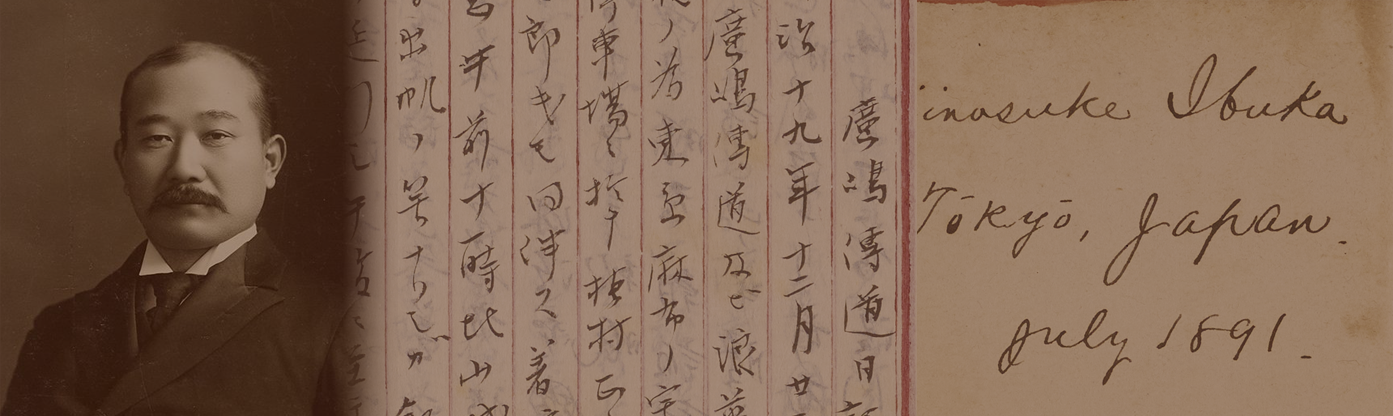 廣嶋傳道日
治十九年十二月廿
廣嶋傳道及ヒ浪
ノ為東京麻布ノ宅
車場ニ於テ植村正
郎氏モ同伴ス着
午前十時比山城
出帆ノ筈ナリシガ
inosuke Ibuka
Tōkyō, Japan.
July 1891.